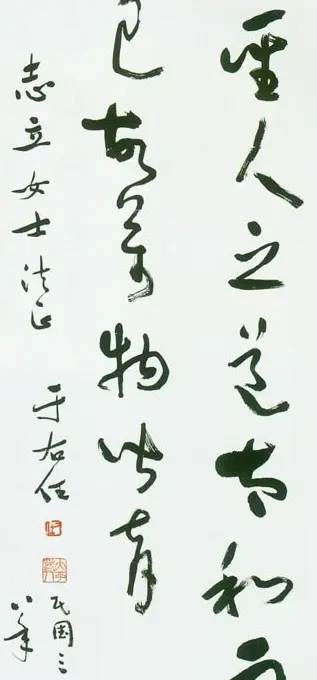 聖人之道太和而
已故萬物皆育
志立女士法正
于右任
民國三
八年